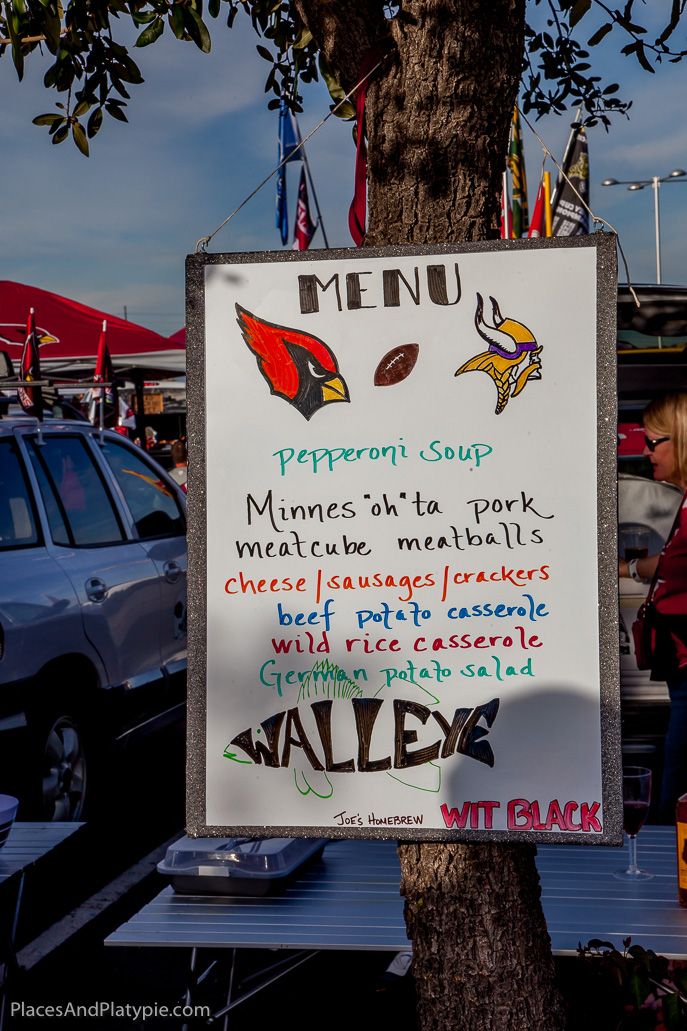 MENU
pepperoni soup
Minnes "oh" ta pork
meatcube meatballs
cheese/sausages/crackers
beef potato casserole
wild rice casserole
German potato salad
WALLEYE
JOE'S HOMEBREW WIT BLACK
PlacesAndPlatypie.com